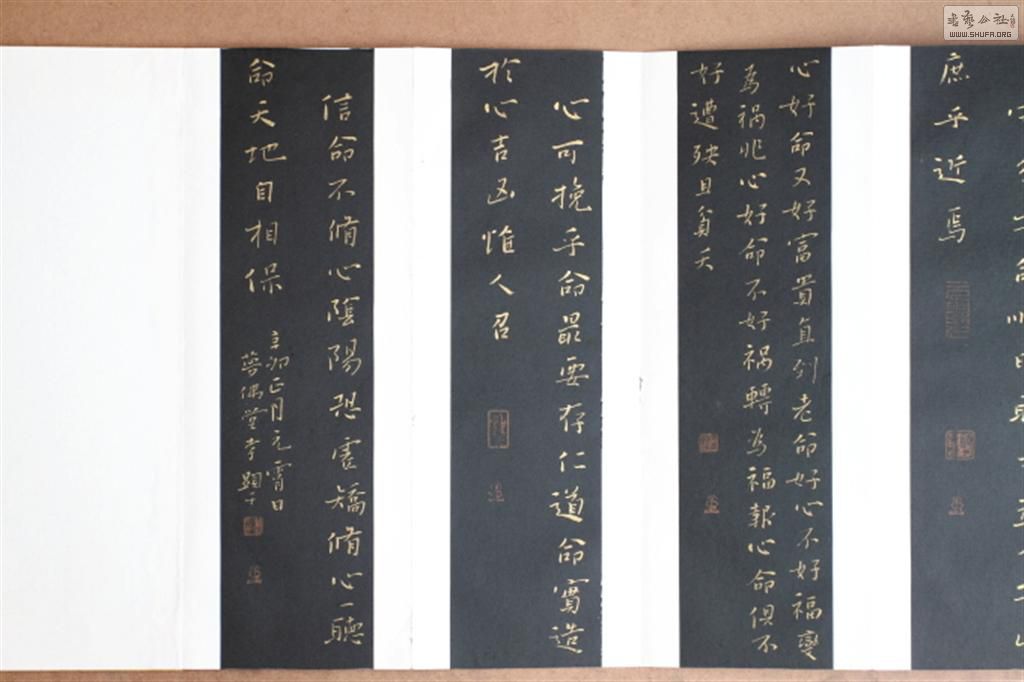 庶乎近焉
心好命又好富貴直到老命好心不好福變
為禍兆心好命不好禍轉為福報心命俱不
好遭殃且貧夭
心可挽乎命最要存仁道命實造
於心吉凶惟人召
信命不脩心陰陽恐虛矯脩心一聽
命天地自相保
正月元霄日
書藝公社
WWW.SHUFA.ORG